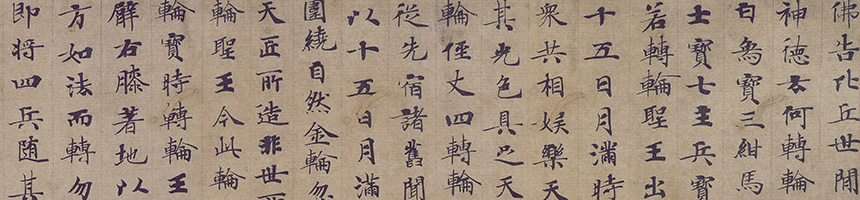 佛告比丘世間
神德云何轉輪
白象寶三紺馬
士寶七主兵寶
若轉輪聖王出
十五日月滿時
眾共相娛樂天
其光色具足天
輪徑丈四轉輪
從先宿諸舊聞
以十五日月滿
圍繞自然金輪忽
天匠所造非世
輪聖王今此輪
輪寶時轉輪王
臂右膝著地以
方如法而轉勿
即將四兵隨其